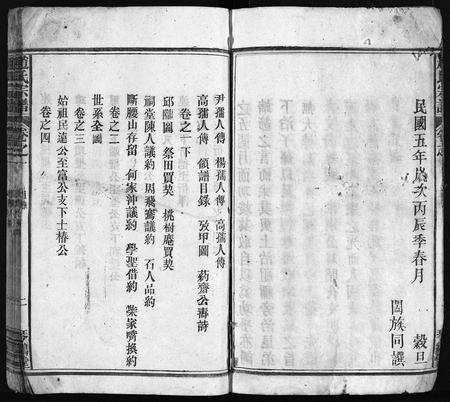 民國五年歲次丙辰季春月 穀旦
闔族同譔
尹孺人傳 楊孺人傳 高孺人傳
高孺人傳 領譜目錄 攷甲圖 葯齋公壽詩
卷之一下
邱隴圖 祭田買契 桃樹庵買契
祠堂陳人議約 周飛騫議約 石人品約
斷腰山存留 何家沖議約 學聖借約 柴家嘴換約
卷之二
世系全圖
卷之三
始祖民遠公至富公支下士椿公
卷之四
氏宗譜 卷之一